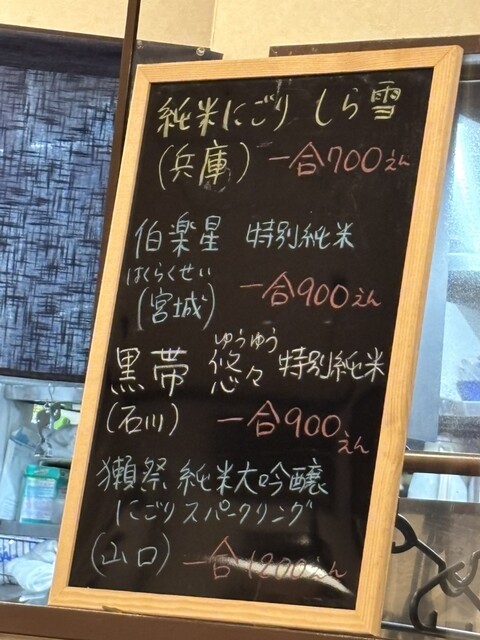 純米にごり しら雪
(兵庫) 一合700えん
伯楽星 特別純米
はくらくせい
(宮城) 一合900えん
ゆうゆう
黒帯 悠々 特別純米
(石川) 一合900えん
獺祭 純米大吟醸
にごりスパークリング
(山口) 一合1200えん